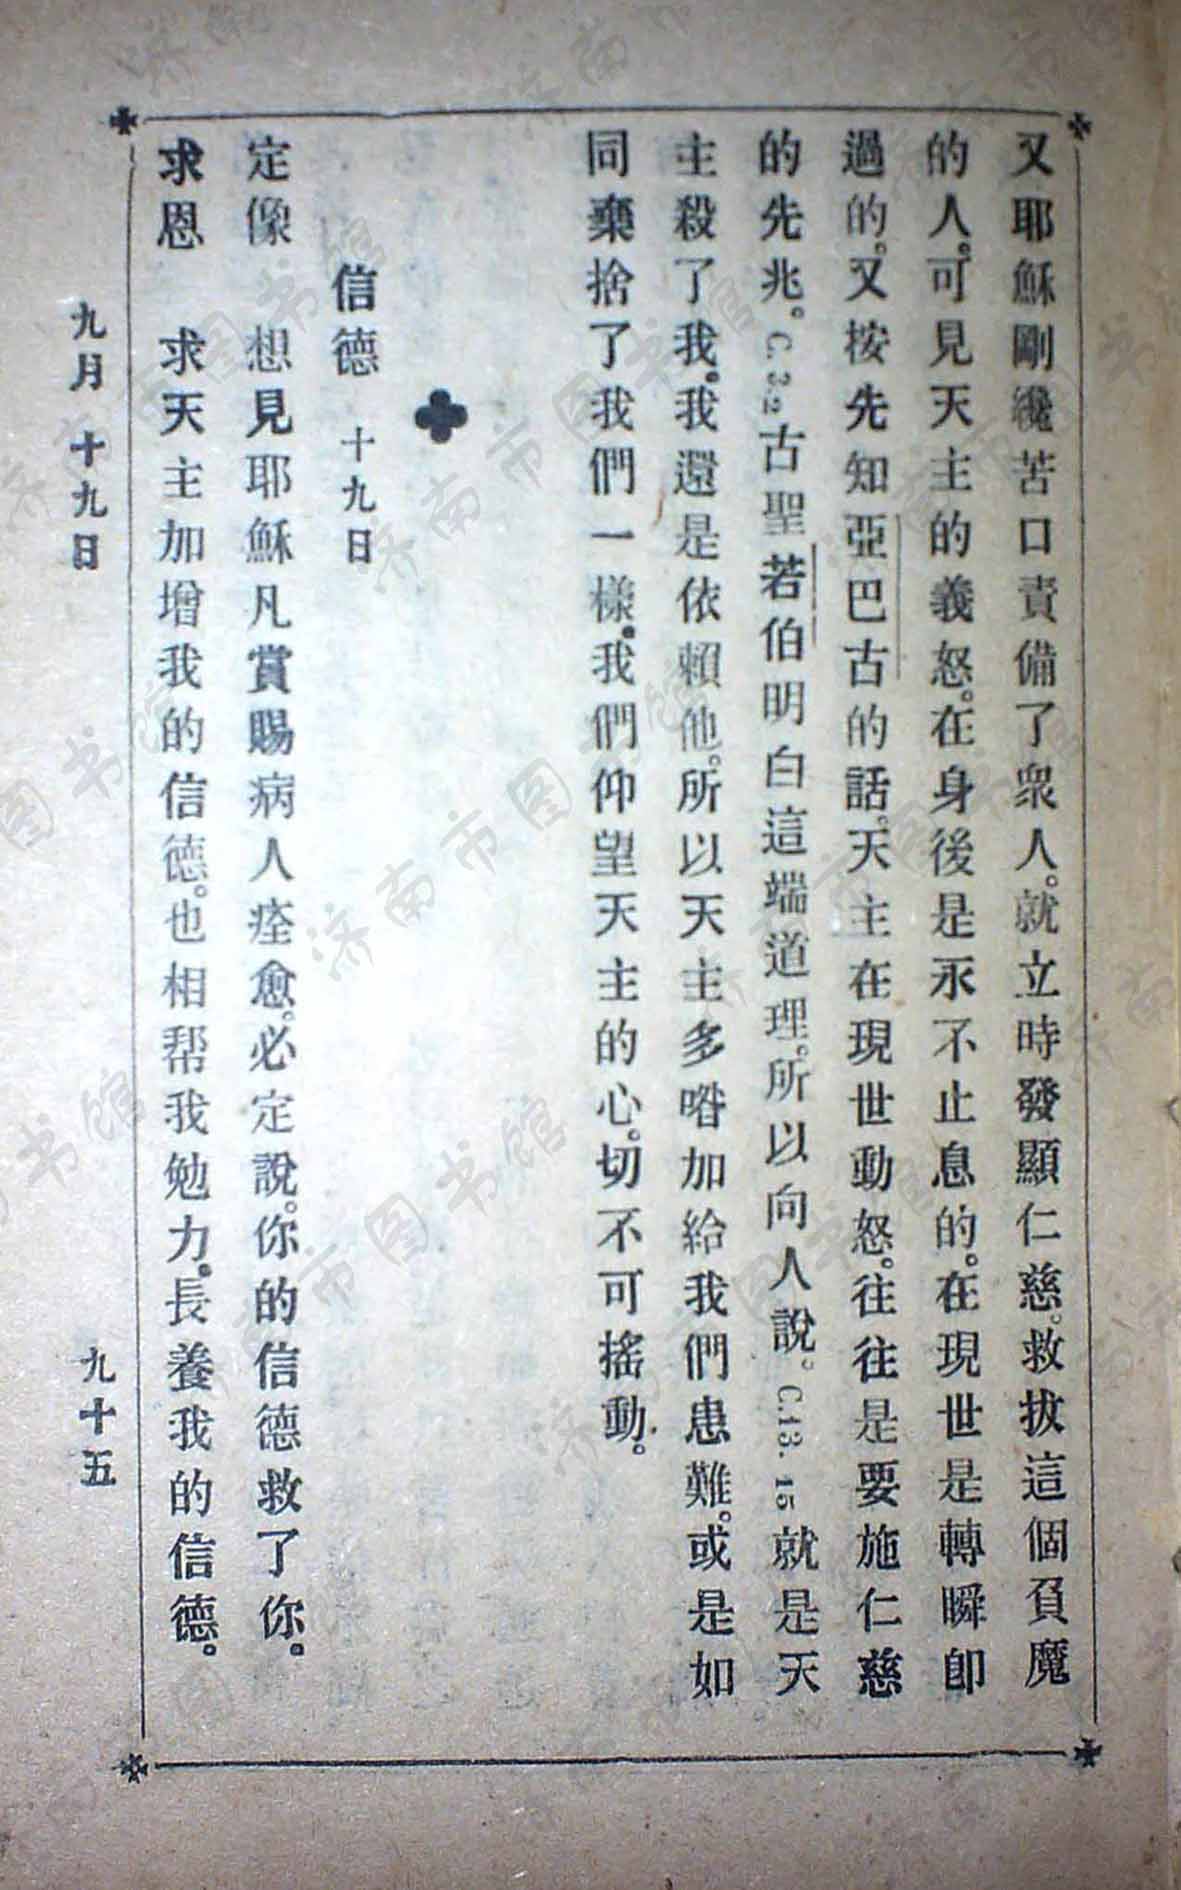 又耶穌剛纔苦口責備了衆人。就立時發顯仁慈。救拔這個負魔
的人。可見天主的義怒。在身後是永不止息的。在現世是轉瞬卽
過的。又按先知亞巴古的話。天主在現世動怒。往往是要施仁慈
的先兆。C. 3.2古聖若伯明白這端道理。所以向人說。C.13. 15就是天
主殺了我。我還是依賴他。所以天主多喒加給我們患難。或是如
同棄捨了我們一樣。我們仰望天主的心。切不可搖動。
信德 十九日
定像 想見耶穌凡賞賜病人痊愈。必定說。你的信德救了你。
求恩 求天主加增我的信德。也相帮我勉力。長養我的信德。
九月十九日 九十五
济南市图书馆